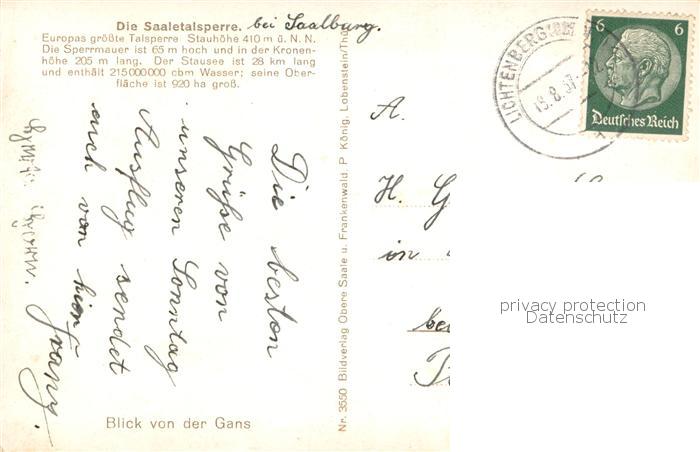 Die Saaletalsperre. bei Saalburg.
Europas größte Talsperre Stauhöhe 410 m ü. N. N.
Die Sperrmauer ist 65 m hoch und in der Kronen-
höhe 205 m lang. Der Stausee ist 28 km lang
und enthält 215 000 000 cbm Wasser; seine Ober-
fläche ist 920 ha groß.
Die besten
Grüße von
unseren Sonntag
Ausflug sendet
euch von hier
Franz.
Blick von der Gans
Nr. 3550 Bildverlag Obere Saale u. Frankenwald. P König, Lobenstein/Thür
LICHTENBERG
19.8.37
6 6
Deutsches Reich
A.
H. G
in
privacy protection
Datenschutz